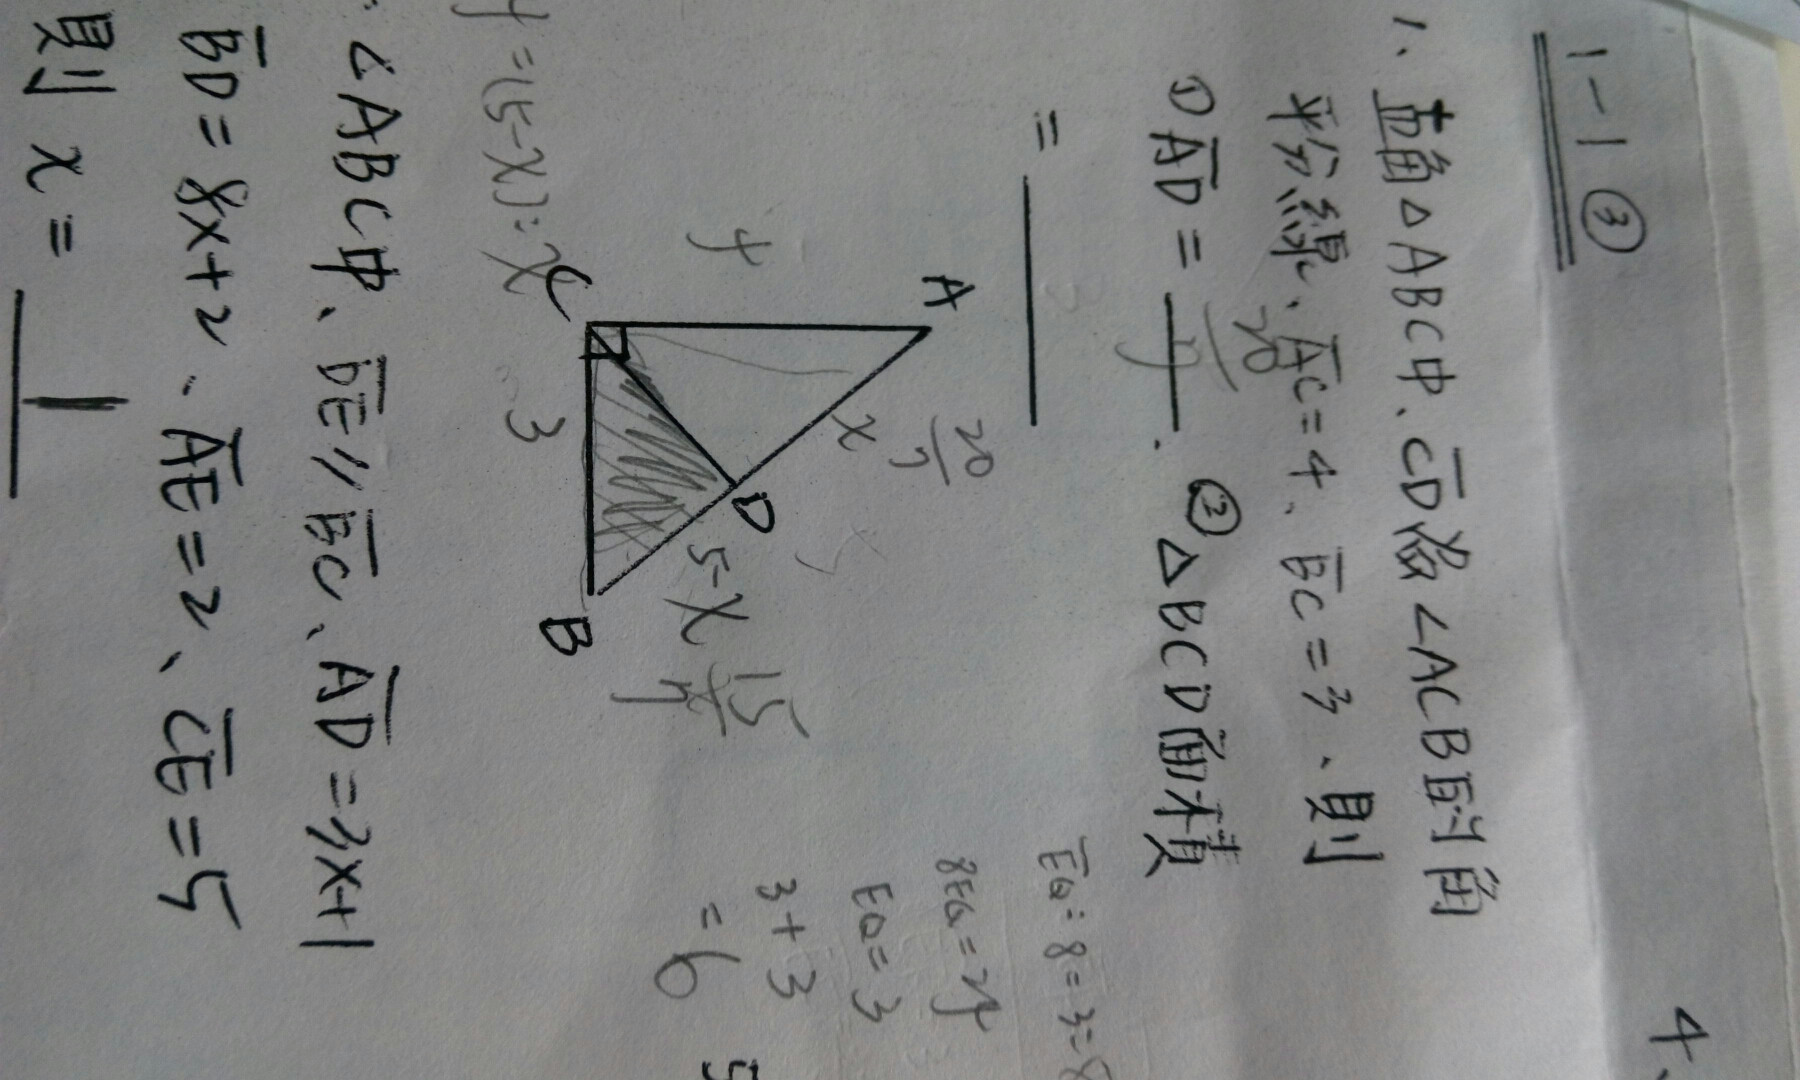 1-1 ③
1、直角△ABC中、CD為∠ACB的角
平分線、AC=4、BC=3、則
① AD= 20/7 . ② △BCD面積
=
A
4
x
20/7
D
5-x
15/7
C
3
B
4=(5-x):x
EQ:8=3=8
8EQ=24
EQ=3
3+3
=6
4、
5
∠ABC中、DE//BC、AD=3x+1
BD=8x+2、AE=2、CE=5
則 x= 1